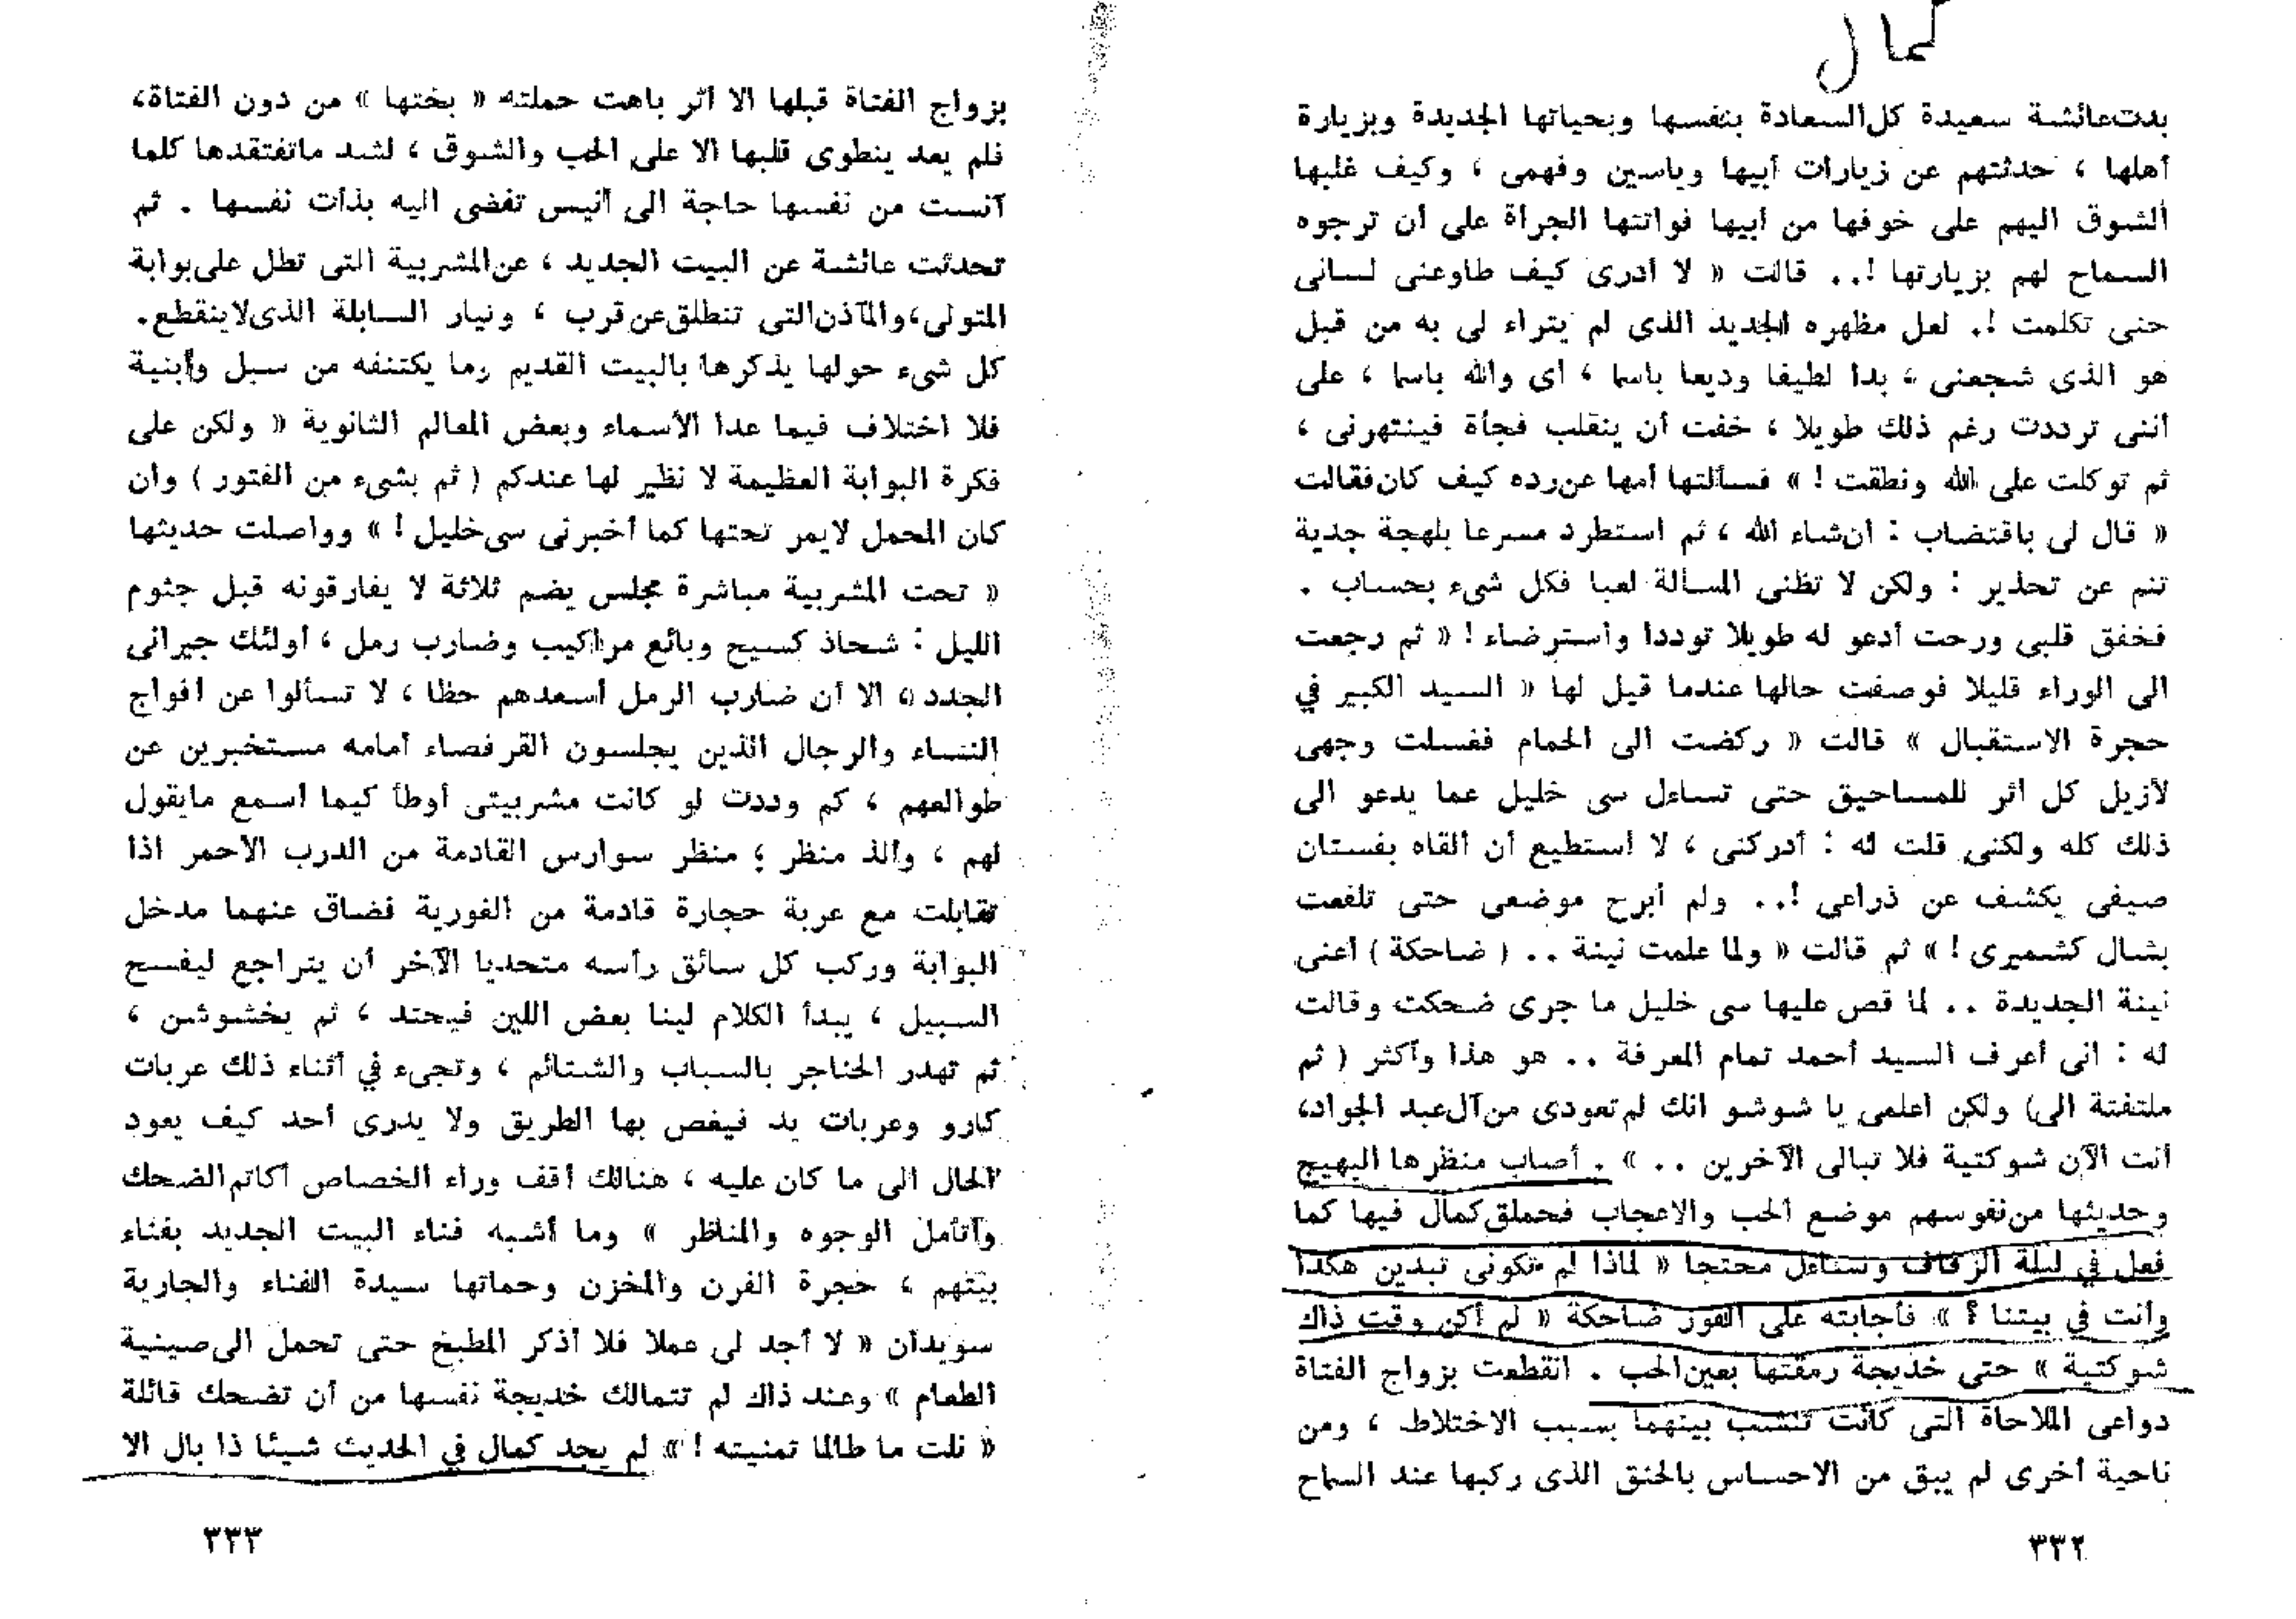 كمال
بدت عائشة سعيدة كل السعادة بنفسها وبحياتها الجديدة وبزيارة
أهلها ، حدثتهم عن زيارات أبيها وياسين وفهمى ، وكيف غلبها
الشوق اليهم على خوفها من أبيها فواتتها الجرأة على أن ترجوه
السماح لهم بزيارتها !.. قالت « لا أدرى كيف طاوعنى لسانى
حتى تكلمت !. لعل مظهره الجديد الذى لم يتراء لى به من قبل
هو الذى شجعنى ، بدا لطيفا وديعا باسما ، أى والله باسما ، على
أننى ترددت رغم ذلك طويلا ، خفت أن ينقلب فجأة فينتهرنى ،
ثم توكلت على الله ونطقت ! » فسألتها أمها عن رده كيف كان فقالت
« قال لى باقتضاب : ان شاء الله ، ثم استطرد مسرعا بلهجة جدية
تنم عن تحذير : ولكن لا تظنى المسألة لعبا فكل شىء بحساب .
فخفق قلبى ورحت أدعو له طويلا توددا واسترضاء ! « ثم رجعت
الى الوراء قليلا فوصفت حالها عندما قيل لها « السيد الكبير في
حجرة الاستقبال » قالت « ركضت الى الحمام فغسلت وجهى
لأزيل كل اثر للمساحيق حتى تساءل سى خليل عما يدعو الى
ذلك كله ولكنى قلت له : أدركنى ، لا أستطيع أن ألقاه بفستان
صيفى يكشف عن ذراعى !.. ولم أبرح موضعى حتى تلفعت
بشال كشميرى ! » ثم قالت « ولما علمت نينة .. ( ضاحكة ) أعنى
نينة الجديدة .. لما قص عليها سى خليل ما جرى ضحكت وقالت
له : انى أعرف السيد أحمد تمام المعرفة .. هو هذا وأكثر ( ثم
ملتفتة الى) ولكن اعلمى يا شوشو انك لم تعودى من آل عبد الجواد،
أنت الآن شوكتية فلا تبالى الآخرين .. » . أصاب منظرها البهيج
وحديثها من نفوسهم موضع الحب والاعجاب فحملق كمال فيها كما
فعل في ليلة الزفاف وتساءل محتجا « لماذا لم تكونى تبدين هكذا
وأنت في بيتنا ؟ » فأجابته على الفور ضاحكة « لم أكن وقت ذاك
شوكتية » حتى خديجة رمقتها بعين الحب . انقطعت بزواج الفتاة
دواعى الملاحاة التى كانت تنشب بينهما بسبب الاختلاط ، ومن
ناحية أخرى لم يبق من الاحساس بالحنق الذى ركبها عند السماح
٣٣٢
بزواج الفتاة قبلها الا أثر باهت حملته « بختها » من دون الفتاة،
فلم يعد ينطوى قلبها الا على الحب والشوق ، لشد ماتفتقدها كلما
آنست من نفسها حاجة الى أنيس تفضى اليه بذات نفسها . ثم
تحدثت عائشة عن البيت الجديد ، عن المشربية التى تطل على بوابة
المتولى،والمآذن التى تنطلق عن قرب ، وتيار السابلة الذى لاينقطع.
كل شىء حولها يذكرها بالبيت القديم وما يكتنفه من سبل وأبنية
فلا اختلاف فيما عدا الأسماء وبعض المعالم الثانوية « ولكن على
فكرة البوابة العظيمة لا نظير لها عندكم ( ثم بشىء من الفتور ) وان
كان المحمل لايمر تحتها كما أخبرنى سى خليل ! » وواصلت حديثها
« تحت المشربية مباشرة مجلس يضم ثلاثة لا يفارقونه قبل جثوم
الليل : شحاذ كسيح وبائع مراكيب وضارب رمل ، أولئك جيرانى
الجدد ، الا أن ضارب الرمل أسعدهم حظا ، لا تسألوا عن أفواج
النساء والرجال الذين يجلسون القرفصاء أمامه مستخبرين عن
طوالعهم ، كم وددت لو كانت مشربيتى أوطأ كيما أسمع مايقول
لهم ، وألذ منظر ؛ منظر سوارس القادمة من الدرب الأحمر اذا
تقابلت مع عربة حجارة قادمة من الغورية فضاق عنهما مدخل
البوابة وركب كل سائق رأسه متحديا الآخر أن يتراجع ليفسح
السبيل ، يبدأ الكلام لينا بعض اللين فيحتد ، ثم يخشوشن ،
ثم تهدر الحناجر بالسباب والشتائم ، وتجىء في أثناء ذلك عربات
كارو وعربات يد فيغص بها الطريق ولا يدرى أحد كيف يعود
الحال الى ما كان عليه ، هنالك أقف وراء الخصاص أكاتم الضحك
وأتأمل الوجوه والمناظر » وما أشبه فناء البيت الجديد بفناء
بيتهم ، حجرة الفرن والمخزن وحماتها سيدة الفناء والجارية
سويدان « لا أجد لى عملا فلا أذكر المطبخ حتى تحمل الى صينية
الطعام » وعند ذاك لم تتمالك خديجة نفسها من أن تضحك قائلة
« نلت ما طالما تمنيته ! » لم يجد كمال في الحديث شيئا ذا بال الا
٣٣٣